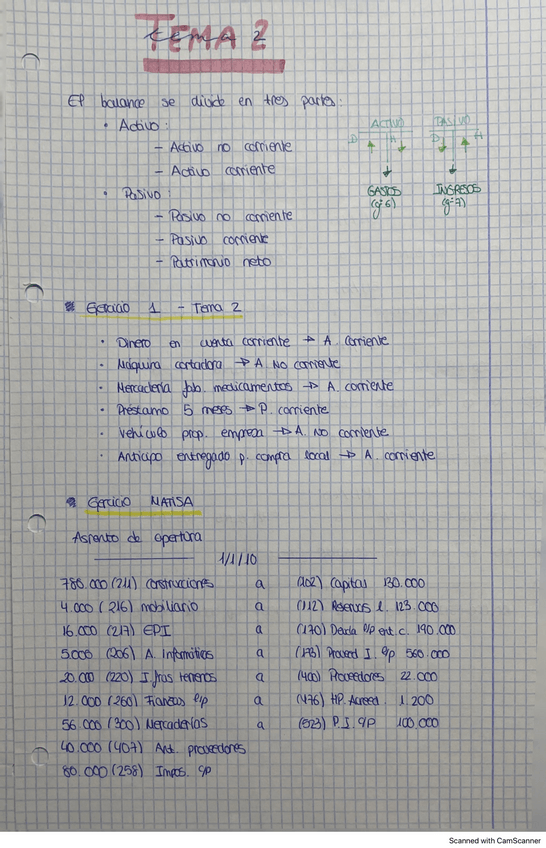 TEMA 2
tema 2
El balance se divide en tres partes:
• Activo:
– Activo no corriente
– Activo corriente
• Pasivo:
– Pasivo no corriente
– Pasivo corriente
– Patrimonio neto
ACTIVO PASIVO
D H D H
GASTOS INGRESOS
(gº6) (gº7)
Ejercicio 1 – Tema 2
• Dinero en cuenta corriente → A. corriente
• Máquina cortadora → A NO corriente
• Mercadería fab. medicamentos → A. corriente
• Préstamo 5 meses → P. corriente
• Vehículo prop. empresa → A. NO corriente
• Anticipo entregado p. compra local → A. corriente
Ejercicio NATISA
Asiento de apertura
1/1/10
780.000 (211) construcciones a (102) Capital 130.000
4.000 (216) mobiliario a (112) Reservas l. 123.000
16.000 (217) EPI a (170) Deuda l/p ent. c. 190.000
5.000 (206) A. Informáticas a (173) Proveed I. l/p 560.000
20.000 (220) I. fras terrenos a (400) Proveedores 22.000
12.000 (260) Fianzas l/p a (476) HP. Acreed. 1.200
56.000 (300) Mercaderías a (523) P. I. c/p 100.000
40.000 (407) Ant. proveedores
80.000 (258) Impos. c/p
Scanned with CamScanner